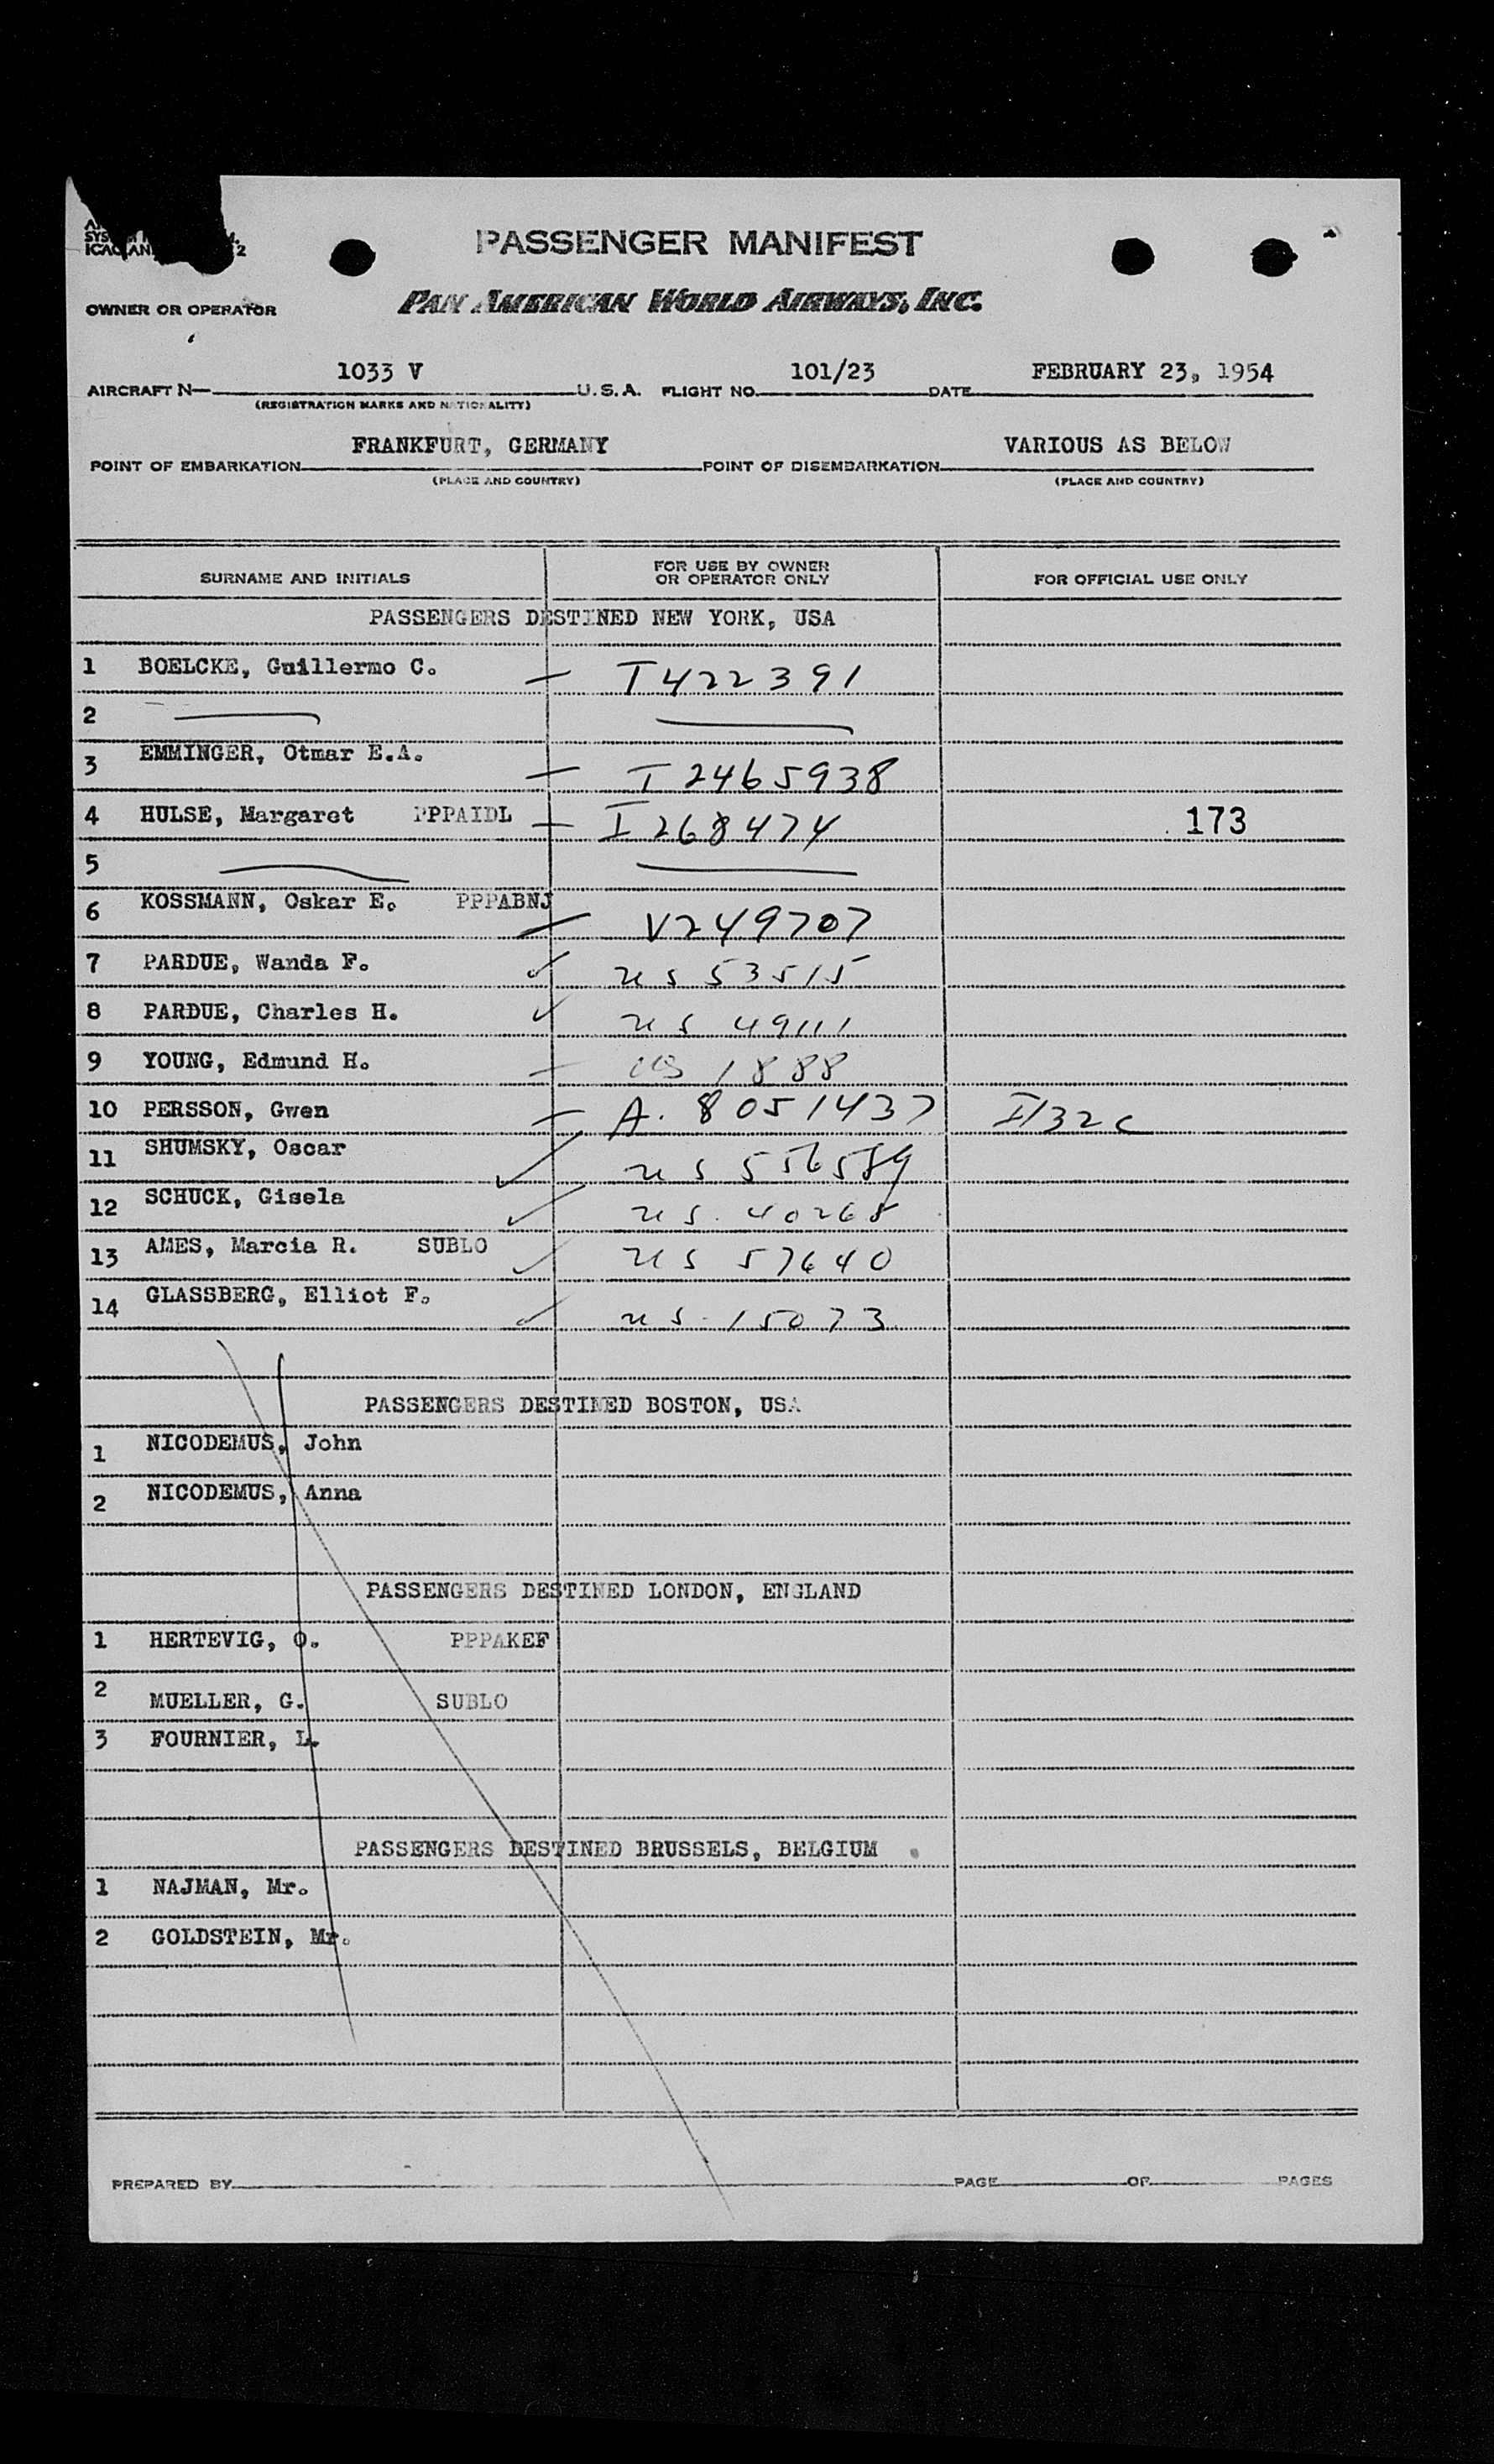 PASSENGER MANIFEST
OWNER OR OPERATOR PAN AMERICAN WORLD AIRWAYS, INC.
AIRCRAFT N— 1033 V U.S.A. FLIGHT NO. 101/23 DATE FEBRUARY 23, 1954
(REGISTRATION MARKS AND NATIONALITY)
POINT OF EMBARKATION FRANKFURT, GERMANY POINT OF DISEMBARKATION VARIOUS AS BELOW
(PLACE AND COUNTRY) (PLACE AND COUNTRY)
SURNAME AND INITIALS FOR USE BY OWNER OR OPERATOR ONLY FOR OFFICIAL USE ONLY
PASSENGERS DESTINED NEW YORK, USA
1 BOELCKE, Guillermo C. — T422391
2
3 EMMINGER, Otmar E.A. — I 2465938
4 HULSE, Margaret PPPAIDL — I 268474 173
5
6 KOSSMANN, Oskar E. PPPABNJ — V249707
7 PARDUE, Wanda F. ✓ US 53515
8 PARDUE, Charles H. ✓ US 49111
9 YOUNG, Edmund H. — US 1888
10 PERSSON, Gwen — A. 8051437 I/32c
11 SHUMSKY, Oscar ✓ US 556589
12 SCHUCK, Gisela ✓ US. 40268
13 AMES, Marcia R. SUBLO ✓ US 57640
14 GLASSBERG, Elliot F. ✓ US. 15073
PASSENGERS DESTINED BOSTON, USA
1 NICODEMUS, John
2 NICODEMUS, Anna
PASSENGERS DESTINED LONDON, ENGLAND
1 HERTEVIG, O. PPPAKEF
2 MUELLER, G. SUBLO
3 FOURNIER, L.
PASSENGERS DESTINED BRUSSELS, BELGIUM
1 NAJMAN, Mr.
2 GOLDSTEIN, Mr.
PREPARED BY PAGE OF PAGES